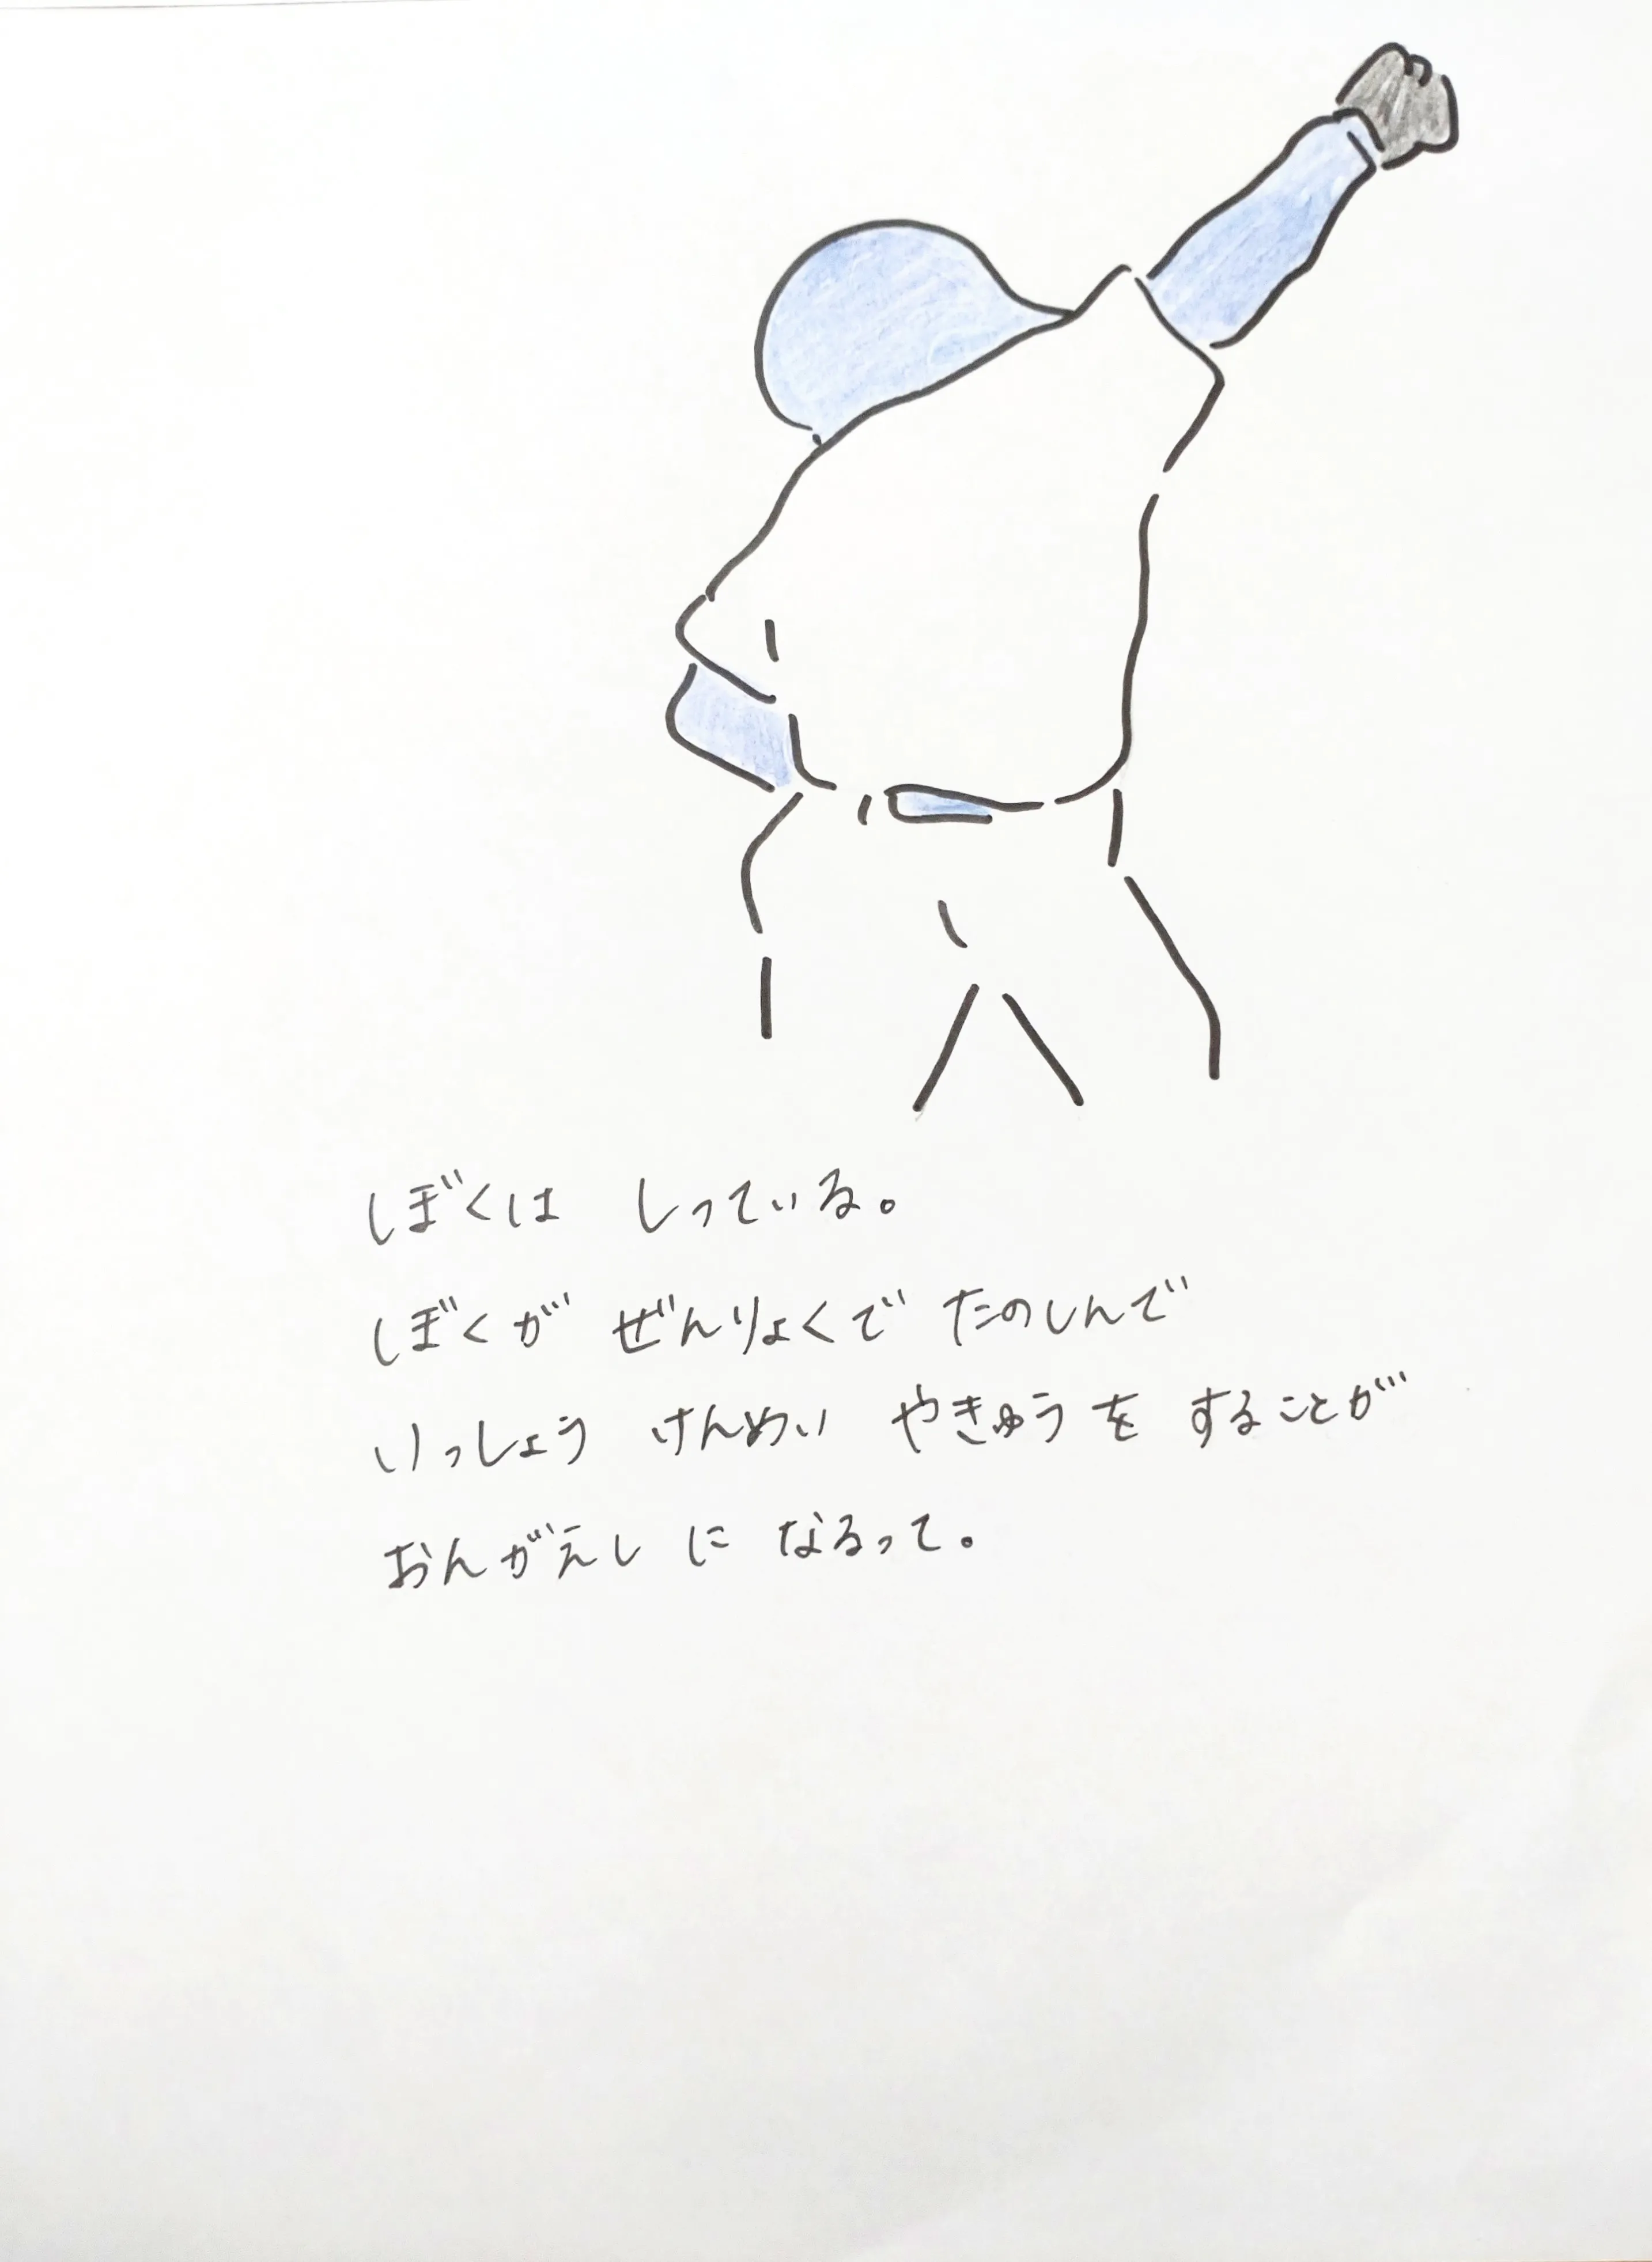 ぼくは しっている。
ぼくが ぜんりょくで たのしんで
いっしょう けんめい やきゅうを することが
おんがえし に なるって。